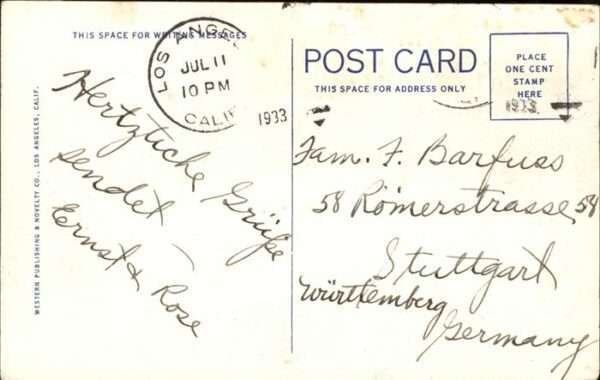 THIS SPACE FOR WRITING MESSAGES
LOS ANG
JUL 11
10 PM
CALIF
1933
Hertzliche Grüße
sendet —
Ernst & Rose
WESTERN PUBLISHING & NOVELTY CO., LOS ANGELES, CALIF.
POST CARD
THIS SPACE FOR ADDRESS ONLY
PLACE
ONE CENT
STAMP
HERE
1933
Fam. F. Barfuss
58 Römerstrasse 58
Stuttgart
Württemberg
Germany